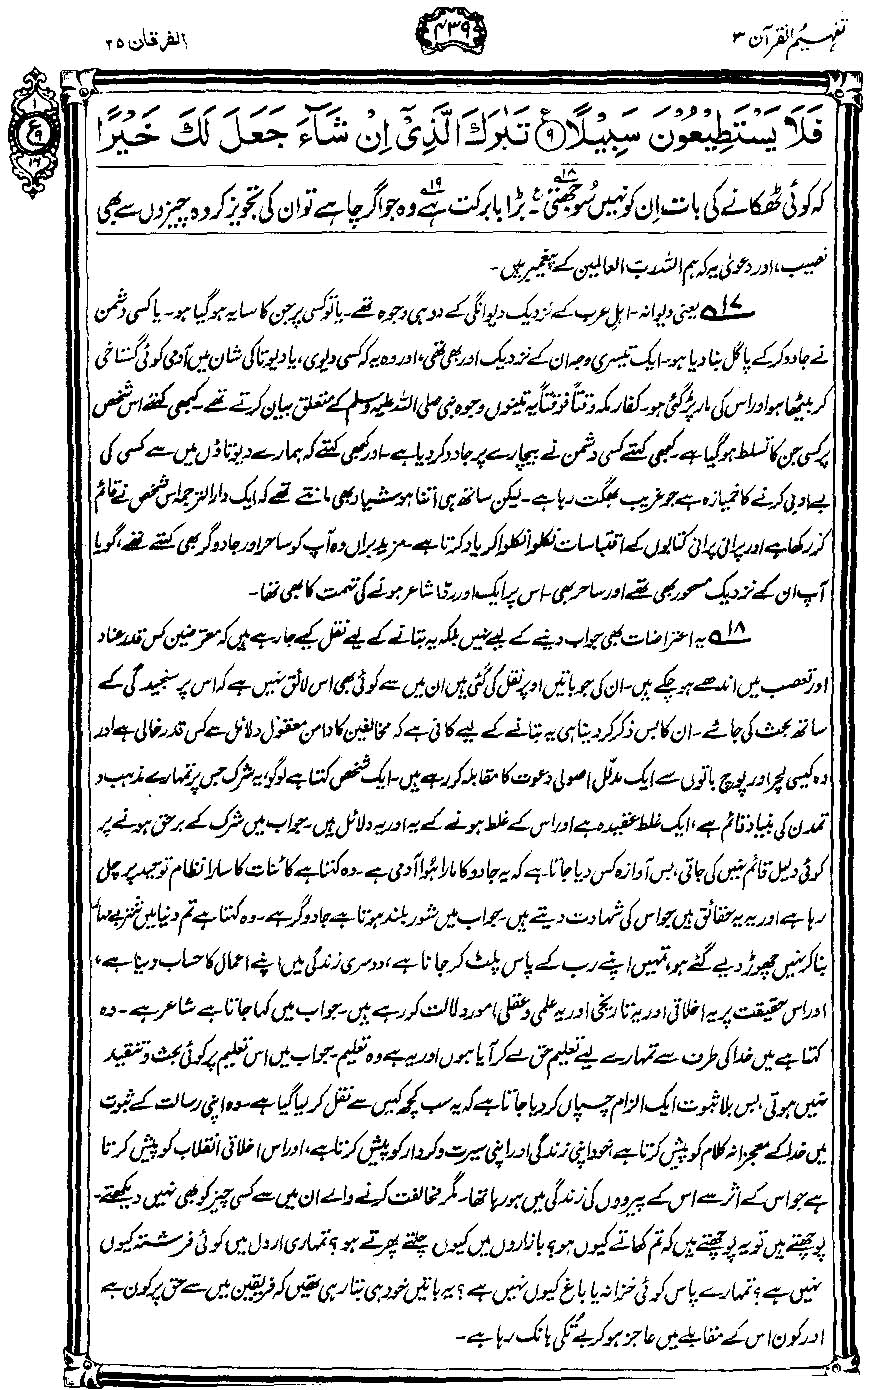 تفہیم القرآن ۳
۴۳۹
الفرقان ۲۵
فَلَا يَسْتَطِيْعُوْنَ سَبِيْلًا ۹ تَبٰرَكَ الَّذِيْٓ اِنْ شَآءَ جَعَلَ لَكَ خَيْرًا
ع
۱
۹
۱۶
کہ کوئی ٹھکانے کی بات اِن کو نہیں سُوجھتی۔ ۱۸ ع بڑا بابرکت ہے ۱۹ وہ جو اگر چاہے تو ان کی تجویز کردہ چیزوں سے بھی
نصیب، اور دعویٰ یہ کہ ہم اللہ رب العالمین کے پیغمبر ہیں۔
۱۷ یعنی دیوانہ۔ اہلِ عرب کے نزدیک دیوانگی کے دو ہی وجوہ تھے۔ یا تو کسی پر جن کا سایہ ہو گیا ہو۔ یا کسی دشمن
نے جادو کر کے پاگل بنا دیا ہو۔ ایک تیسری وجہ ان کے نزدیک اور بھی تھی، اور وہ یہ کہ کسی دیوی، یا دیوتا کی شان میں آدمی کوئی گستاخی
کر بیٹھا ہو اور اس کی مار پڑ گئی ہو۔ کفار مکہ وقتاً فوقتاً یہ تینوں وجوہ نبی صلی اللہ علیہ وسلم کے متعلق بیان کرتے تھے۔ کبھی کہتے اس شخص
پر کسی جن کا تسلط ہو گیا ہے۔ کبھی کہتے کسی دشمن نے بیچارے پر جادو کر دیا ہے۔ اور کبھی کہتے کہ ہمارے دیوتاؤں میں سے کسی کی
بے ادبی کرنے کا خمیازہ ہے جو غریب بھگت رہا ہے۔ لیکن ساتھ ہی اتنا ہوشیار بھی مانتے تھے کہ ایک دارالترجمہ اس شخص نے قائم
کر رکھا ہے اور پرانی پرانی کتابوں کے اقتباسات نکلوا نکلوا کر یاد کرتا ہے۔ مزید براں وہ آپ کو ساحر اور جادوگر بھی کہتے تھے، گویا
آپ ان کے نزدیک مسحور بھی تھے اور ساحر بھی۔ اس پر ایک اور ردّا شاعر ہونے کی تہمت کا بھی تھا۔
۱۸ یہ اعتراضات بھی جواب دینے کے لیے نہیں بلکہ یہ بتانے کے لیے نقل کیے جا رہے ہیں کہ معترضین کس قدر عناد
اور تعصب میں اندھے ہو چکے ہیں۔ ان کی جو باتیں اوپر نقل کی گئی ہیں ان میں سے کوئی بھی اس لائق نہیں ہے کہ اس پر سنجیدگی کے
ساتھ بحث کی جائے۔ ان کا بس ذکر کر دینا ہی یہ بتانے کے لیے کافی ہے کہ مخالفین کا دامن معقول دلائل سے کس قدر خالی ہے اور
وہ کیسی لچر اور پوچ باتوں سے ایک مدلّل اصولی دعوت کا مقابلہ کر رہے ہیں۔ ایک شخص کہتا ہے لوگو، یہ شرک جس پر تمہارے مذہب و
تمدن کی بنیاد قائم ہے، ایک غلط عقیدہ ہے اور اس کے غلط ہونے کے یہ اور یہ دلائل ہیں۔ جواب میں شرک کے برحق ہونے پر
کوئی دلیل قائم نہیں کی جاتی، بس آوازہ کس دیا جاتا ہے کہ یہ جادو کا مارا ہُوا آدمی ہے۔ وہ کہتا ہے کائنات کا سارا نظام توحید پر چل
رہا ہے اور یہ یہ حقائق ہیں جو اس کی شہادت دیتے ہیں۔ جواب میں شور بلند ہوتا ہے جادوگر ہے۔ وہ کہتا ہے تم دنیا میں شتر بے مہار
بنا کر نہیں چھوڑ دیے گئے ہو، تمہیں اپنے رب کے پاس پلٹ کر جانا ہے، دوسری زندگی میں اپنے اعمال کا حساب دینا ہے،
اور اس حقیقت پر یہ اخلاقی اور یہ تاریخی اور یہ علمی و عقلی امور دلالت کر رہے ہیں۔ جواب میں کہا جاتا ہے شاعر ہے۔ وہ
کہتا ہے میں خدا کی طرف سے تمہارے لیے تعلیمِ حق لے کر آیا ہوں اور یہ ہے وہ تعلیم۔ جواب میں اس تعلیم پر کوئی بحث و تنقید
نہیں ہوتی، بس بلا ثبوت ایک الزام چسپاں کر دیا جاتا ہے کہ یہ سب کچھ کہیں سے نقل کر لیا گیا ہے۔ وہ اپنی رسالت کے ثبوت
میں خدا کے معجزانہ کلام کو پیش کرتا ہے، خود اپنی زندگی اور اپنی سیرت و کردار کو پیش کرتا ہے، اور اس اخلاقی انقلاب کو پیش کرتا
ہے جو اس کے اثر سے اس کے پیرووں کی زندگی میں ہو رہا تھا۔ مگر مخالفت کرنے والے ان میں سے کسی چیز کو بھی نہیں دیکھتے۔
پوچھتے ہیں تو یہ پوچھتے ہیں کہ تم کھاتے کیوں ہو؟ بازاروں میں کیوں چلتے پھرتے ہو؟ تمہاری اردل میں کوئی فرشتہ کیوں
نہیں ہے؟ تمہارے پاس کوئی خزانہ یا باغ کیوں نہیں ہے؟ یہ باتیں خود ہی بتا رہی تھیں کہ فریقین میں سے حق پر کون ہے
اور کون اس کے مقابلے میں عاجز ہو کر بے تُکی ہانک رہا ہے۔